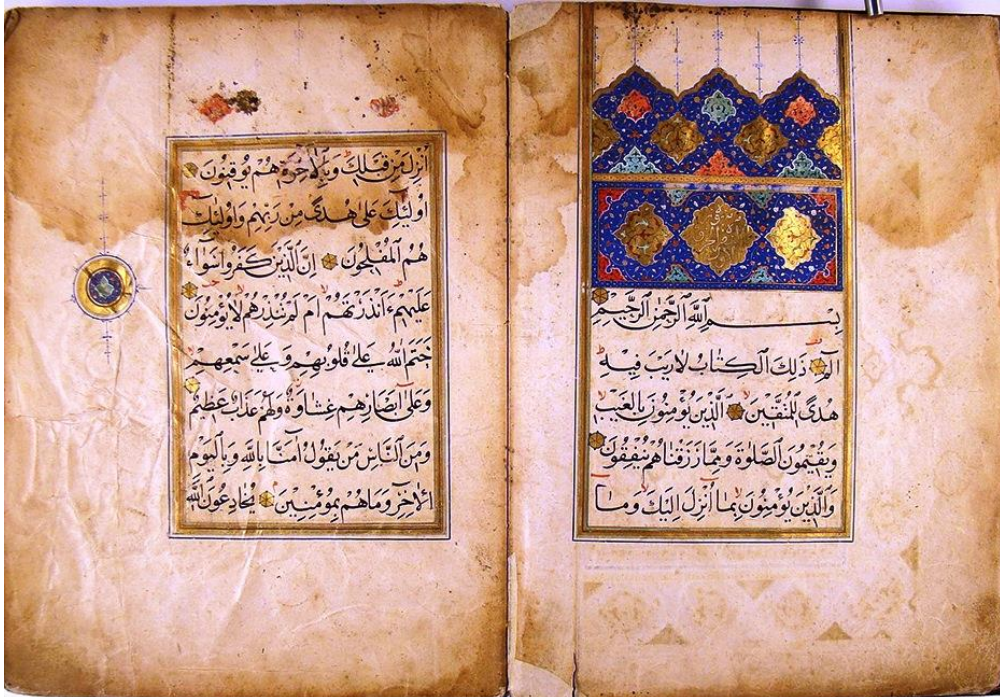 بِسْمِ اللَّهِ الرَّحْمٰنِ الرَّحِيمِ
الٓمٓ ذَلِكَ الْكِتَابُ لَا رَيْبَ فِيهِ
هُدًى لِلْمُتَّقِينَ الَّذِينَ يُؤْمِنُونَ بِالْغَيْبِ
وَيُقِيمُونَ الصَّلٰوةَ وَمِمَّا رَزَقْنَاهُمْ يُنْفِقُونَ
وَالَّذِينَ يُؤْمِنُونَ بِمَا أُنْزِلَ إِلَيْكَ وَمَا
أُنْزِلَ مِنْ قَبْلِكَ وَبِالْاٰخِرَةِ هُمْ يُوقِنُونَ
أُولٰئِكَ عَلٰى هُدًى مِنْ رَبِّهِمْ وَأُولٰئِكَ
هُمُ الْمُفْلِحُونَ إِنَّ الَّذِينَ كَفَرُوا سَوَاءٌ
عَلَيْهِمْ ءَأَنْذَرْتَهُمْ أَمْ لَمْ تُنْذِرْهُمْ لَا يُؤْمِنُونَ
خَتَمَ اللَّهُ عَلٰى قُلُوبِهِمْ وَعَلٰى سَمْعِهِمْ
وَعَلٰى أَبْصَارِهِمْ غِشَاوَةٌ وَلَهُمْ عَذَابٌ عَظِيمٌ
وَمِنَ النَّاسِ مَنْ يَقُولُ اٰمَنَّا بِاللَّهِ وَبِالْيَوْمِ
الْاٰخِرِ وَمَا هُمْ بِمُؤْمِنِينَ يُخَادِعُونَ اللَّهَ